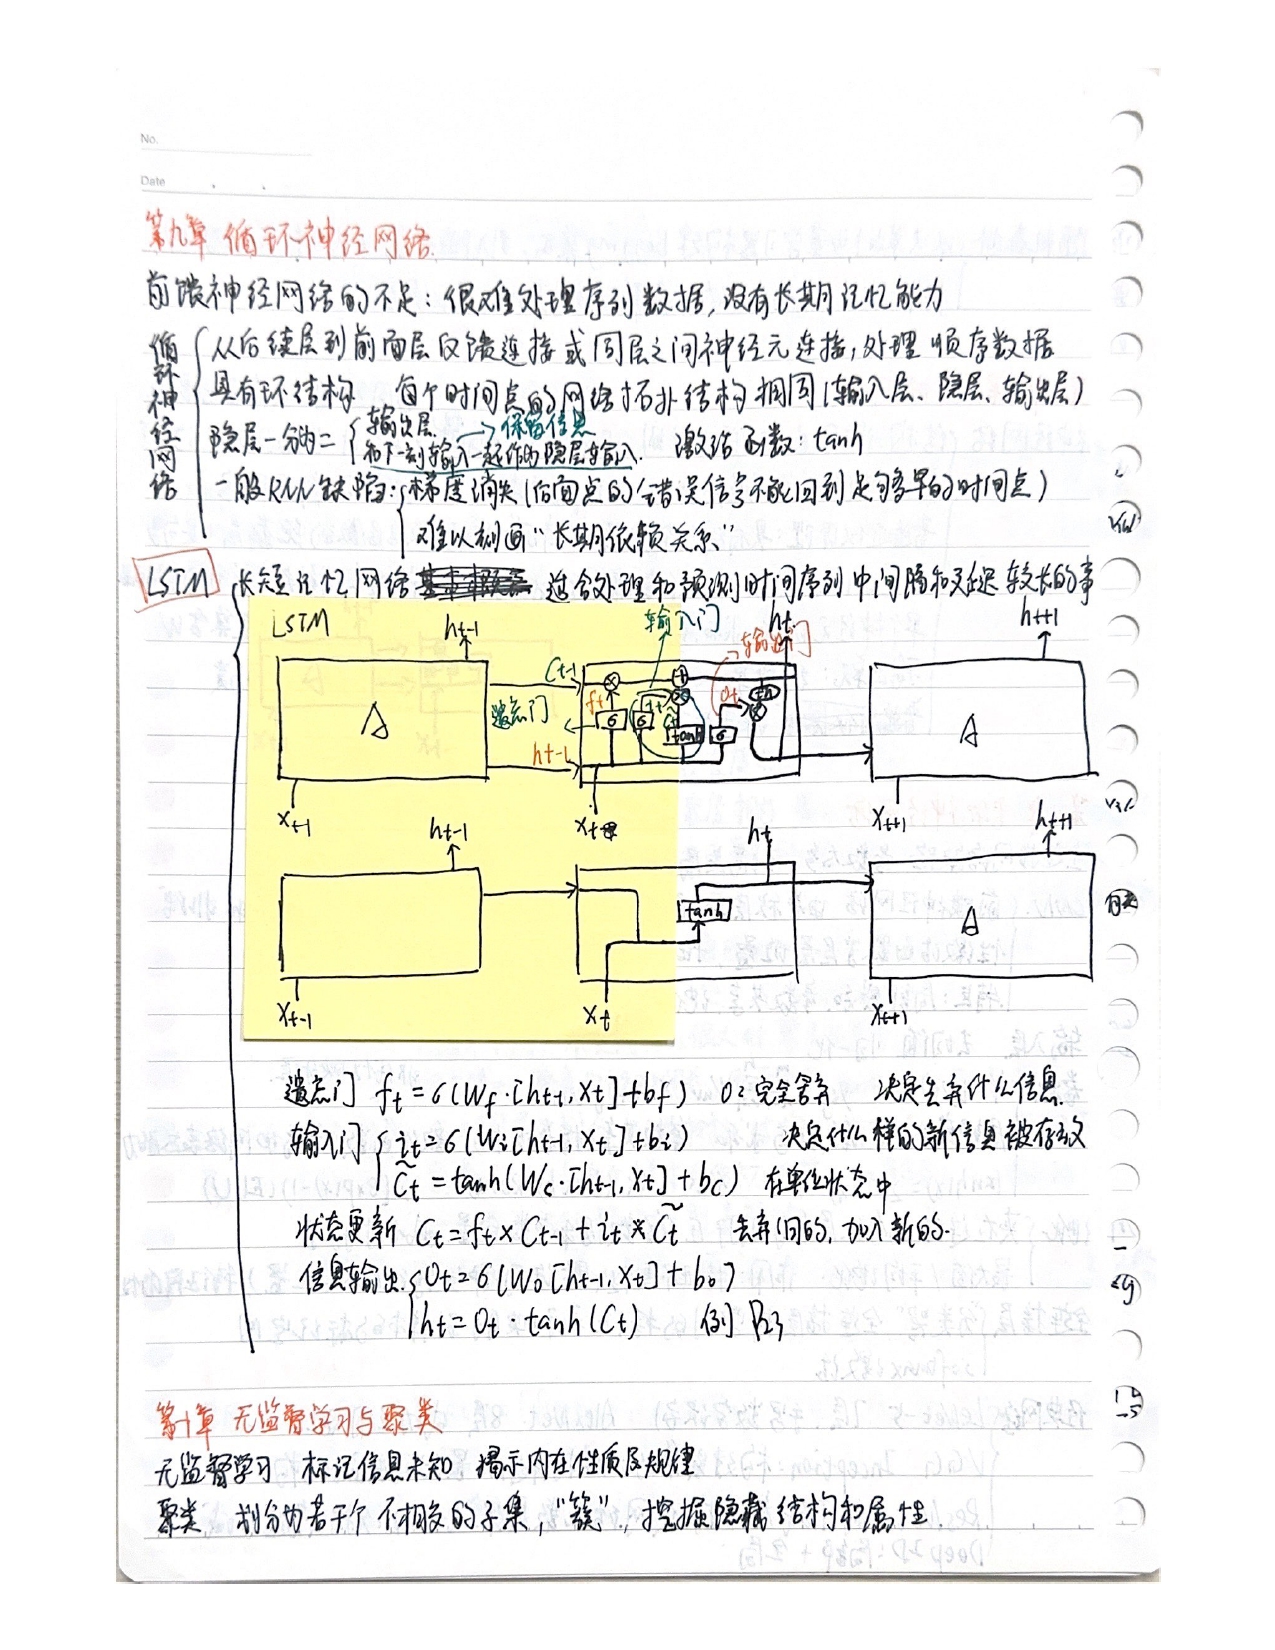 No.
Date
第九章 循环神经网络
前馈神经网络的不足：很难处理序列数据，没有长期记忆能力
循环神经网络
从后续层到前面层反馈连接或同层之间神经元连接，处理顺序数据
具有环结构 每个时间点的网络拓扑结构相同(输入层、隐层、输出层)
隐层一分为二
输出层 → 保留信息
和下一刻输入一起作为隐层输入. 激活函数：tanh
一般RNN缺陷：梯度消失(后面点的错误信号不能回到足够多早的时间点)
难以刻画“长期依赖关系”
LSTM 长短记忆网络 适合处理和预测时间序列中间隔和延迟较长的事
LSTM
ht-1 输入门 ht ht+1
Ct-1 输出门
A 遗忘门 ft σ σ it C̃t tanh Ot σ A
ht-1
Xt-1 Xt Xt+1
ht-1 ht ht+1
tanh A
Xt-1 Xt Xt+1
遗忘门 ft = σ(Wf·[ht-1, Xt]+bf) 0：完全舍弃 决定丢弃什么信息
输入门 it = σ(Wi[ht-1, Xt]+bi) 决定什么样的新信息被存放
C̃t = tanh(Wc·[ht-1, Xt]+bc) 在单位状态中
状态更新 Ct = ft × Ct-1 + it × C̃t 丢弃旧的, 加入新的.
信息输出. Ot = σ(Wo[ht-1, Xt]+bo)
ht = Ot · tanh(Ct) 例 P23
第十章 无监督学习与聚类
无监督学习 标记信息未知 揭示内在性质及规律
聚类 划分为若干个不相交的子集，“簇”，挖掘隐藏结构和属性